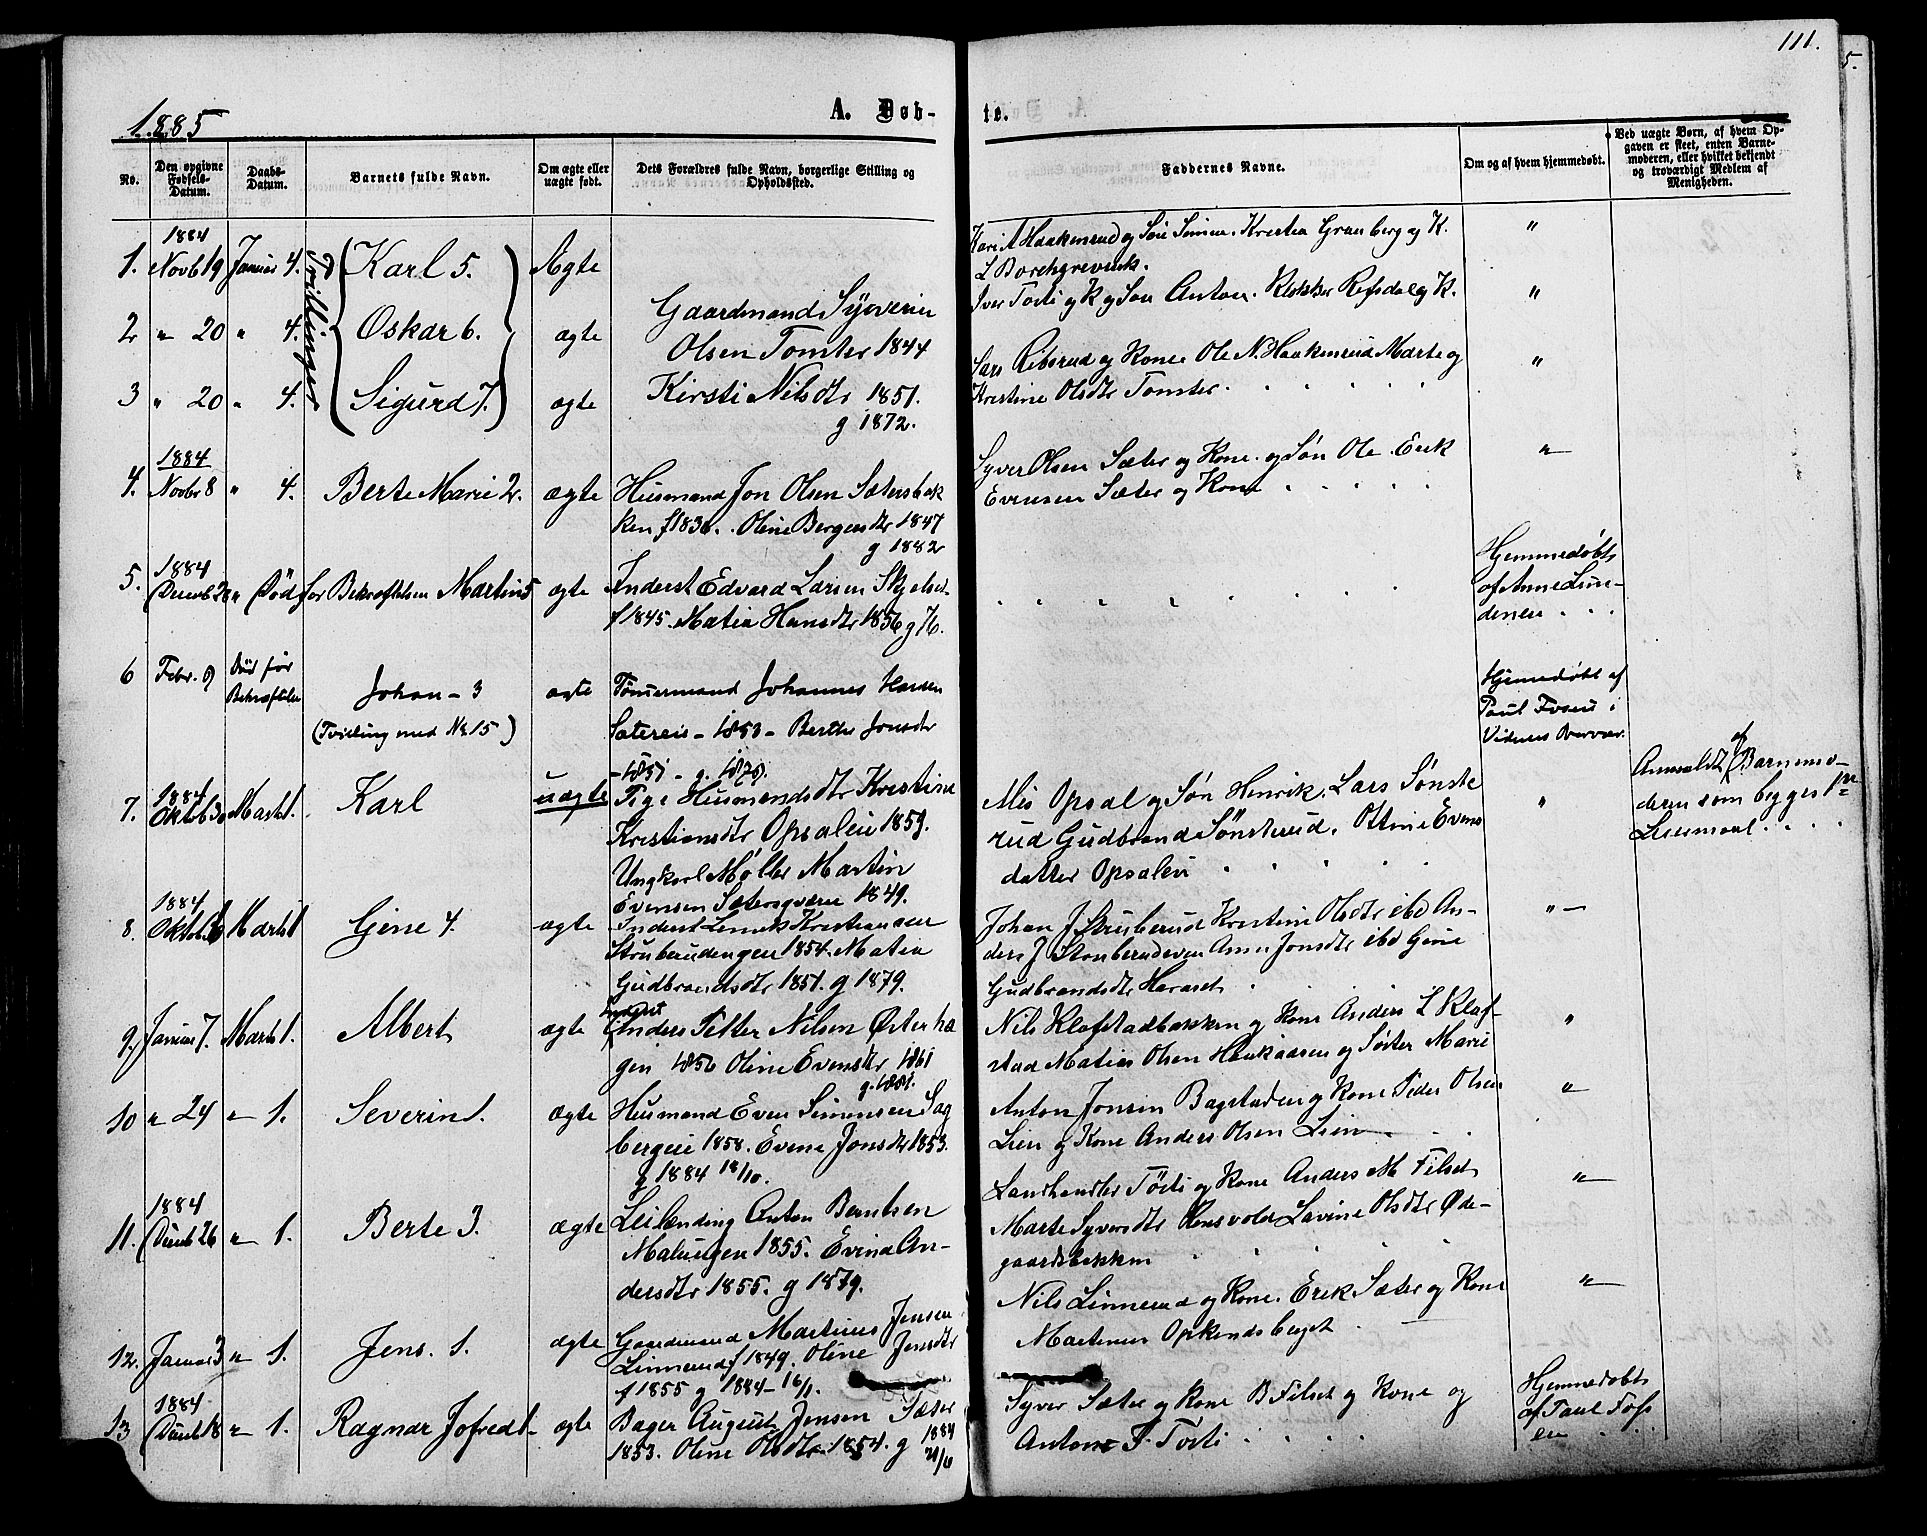 111.
5.
1885
A. Døb-
te.
No.
Den opgivne Fødsels-Datum.
Daabs-Datum.
Barnets fulde Navn.
Om ægte eller uægte født.
Dets Forældres fulde Navn, borgerlige Stilling og Opholdssted.
Faddernes Navne.
Om og af hvem hjemmedøbt.
Ved uægte Børn, af hvem Opgaven er skeet, enten Barnemoderen, eller hvilket bekjendt og troværdigt Medlem af Menigheden.
Trillinger
1884
1. Novb 19 Januar 4. Karl 5. Ægte
2 " 20 " 4. Oskar 6. ægte
3 " 20 " 4. Sigurd 7. ægte
Gaardmand Syverin
Olsen Tomter 1844
Kirsti Nilsdtr 1851.
g 1872.
Kari A Haakensrud og Søn Simen. Kristia Granberg og K.
L Borchgrevink. "
Iver Tosti og K og Søn Anton. Klokker Refsdal og K. "
Lars Ribsrud og Kone Ole N. Haakensrud Marte og "
Kristine Olsdtr Tomter.
1884
4. Novbr 8 " 4. Berte Marie 2. ægte Husmand Jon Olsen Sætersbak
ken f 1836. Oline Bergersdtr 1847
g 1882
Syver Olsen Sæter og Kone og Søn Ole. Erik "
Evensen Sæter og Kone
1884
5. Decemb 28 " Død før Bekræftelsen Martin 5 ægte Inderst Edvard Larsen Skjelset
f 1845. Matia Hansdtr 1856 g 76.
Hjemmedøbt
af Anne Lun-
denen
6 Febr. 9 Død før
Bekræftelsen
Johan - 3
(Tvilling med Nr. 15)
ægte Tømmermand Johannes Hansen
Sætereie - 1853 - Berthe Jonsdtr
- 1851 - g. 1878.
Hjemmedøbt af
Paul Fosen i
Vidners Overvær.
1884
7. Oktb 30 Marts 1. Karl uægte Pige Husmandsdtr Kristine
Kristiansdtr Opsaleie 1859.
Ungkarl Møller Martin
Evensen Sætersqværn 1849.
Nils Opsal og Søn Henrik. Lars Sønste
rud Gudbrand Sønsterud. Ottine Evens
datter Opsalen "
Anmeldt af Barnemo-
deren som begges 1ste
Leiermaal.
1884
8. Oktob. Marts 1 Gine 4. ægte Inderst Kristiansen
Struberudengen 1854. Matia
Gudbrandsdtr 1851. g 1879.
Johan J Struberud Kristine Olsdtr ibd An- "
ders J Stonberudeven Anne Jonsdtr ibd Gine
Gudbrandsdtr Haraset
9. Januar 7. Marts 1. Albert ægte Inderst
Anders Petter Nilsen Østerha
gen 1856 Oline Evensdtr 1861
g. 1881.
Nils Klofstadbakken og Kone Anders L Klof-
stad Matias Olsen Haukaasen og Søster Marie "
10 " 24 " 1. Severin 1. ægte Husmand Even Simensen Sag
bergeie 1858. Evene Jonsdtr 1853.
g 1884 18/10.
Anton Jonsen Bagstaden og Kone Peder Olsen "
Lien og Kone Anders Olsen Lien
1884
11. Decmb 26 " 1. Berte 3. ægte Leilending Anton Berntsen
Malungen 1855. Evina An-
dersdtr 1855. g 1879.
Landhandler Tosti og Kone Anders M Filset "
Marte Syversdtr Honsvolen Lavine Olsdtr Øde-
gaardsbakken
12. Januar 3 " 1. Jens. 1. ægte Gaardmand Martinus Jensen
Linnerud f 1849. Oline Jensdtr
f 1855 g 1884 - 16/1.
Nils Linnerud og Kone. Erik Sæter og Kone "
Martinus Opkendsberget
1884
13 Decmb 18 " 1. Ragnar Jofred 1. ægte Bager August Jensen Sæter
1853. Oline Olsdtr 1854. g 1884
Syver Sæter og Kone B Filset og Kone og
Anton F. Tosti
Hjemmedøbt
af Paul Fos
en